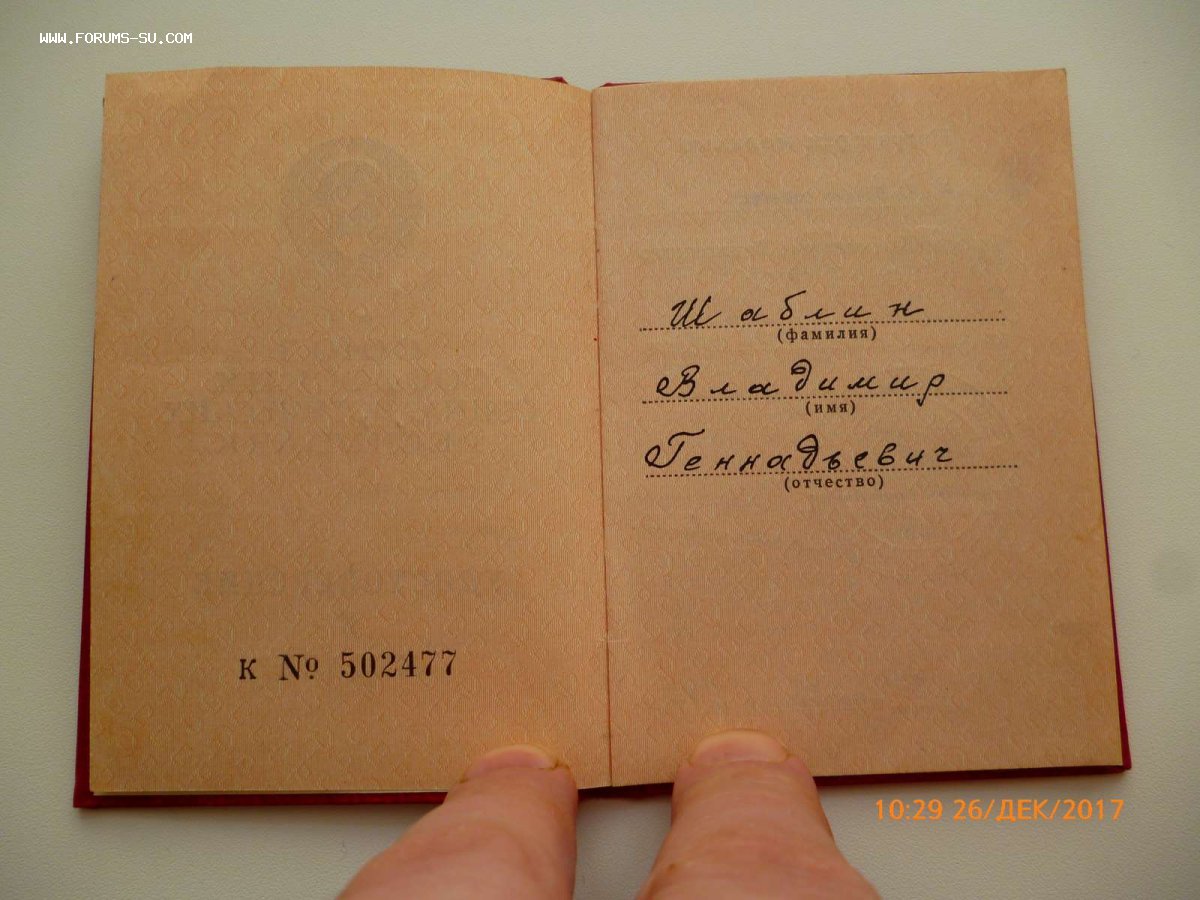 WWW.FORUMS-SU.COM
К № 502477
Шаблин
(фамилия)
Владимир
(имя)
Геннадьевич
(отчество)
10:29 26/ДЕК/2017